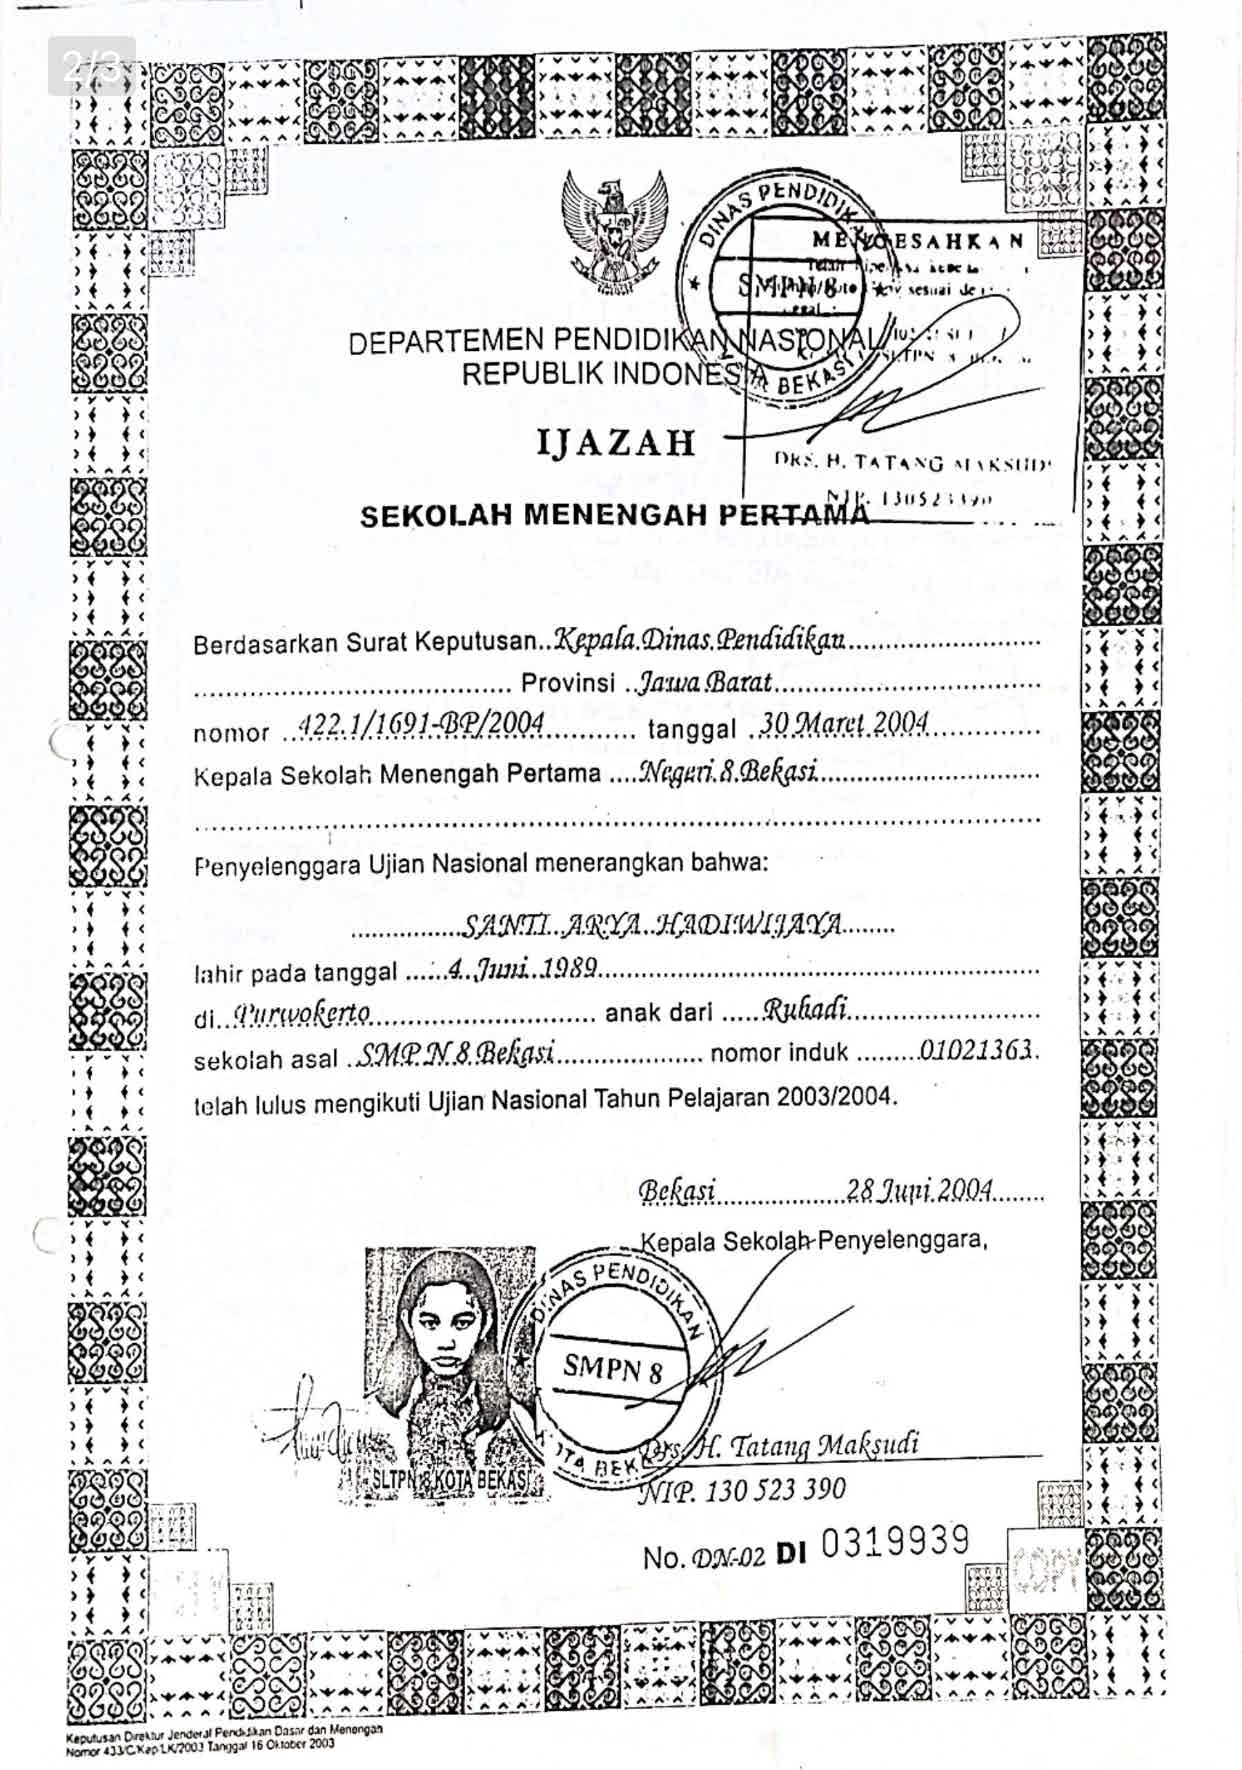 2/3
DINAS PENDIDIK
SMPN 8
BEKASI
MENGESAHKAN
sesuai
DRS. H. TATANG MAKSUDI
NIP. 130523390
DEPARTEMEN PENDIDIKAN NASIONAL
REPUBLIK INDONESIA
IJAZAH
SEKOLAH MENENGAH PERTAMA
Berdasarkan Surat Keputusan..Kepala.Dinas.Pendidikan
Provinsi ..Jawa Barat
nomor ..422.1/1691-BP/2004 tanggal .30 Maret 2004
Kepala Sekolah Menengah Pertama ....Negeri.8.Bekasi
Penyelenggara Ujian Nasional menerangkan bahwa:
SANTI..ARYA..HADIWIJAYA
lahir pada tanggal ......4..Juni..1989
di..Purwokerto anak dari .....Ruhadi
sekolah asal .SMP.N.8.Bekasi nomor induk ........01021363.
telah lulus mengikuti Ujian Nasional Tahun Pelajaran 2003/2004.
Bekasi 28 Juni 2004
Kepala Sekolah Penyelenggara,
DINAS PENDIDIKAN
SMPN 8
KOTA BEKASI
SLTPN 8 KOTA BEKASI
Drs. H. Tatang Maksudi
NIP. 130 523 390
No. DN-02 DI 0319939
COPY
Keputusan Direktur Jenderal Pendidikan Dasar dan Menengah
Nomor 433/C/Kep/LK/2003 Tanggal 16 Oktober 2003